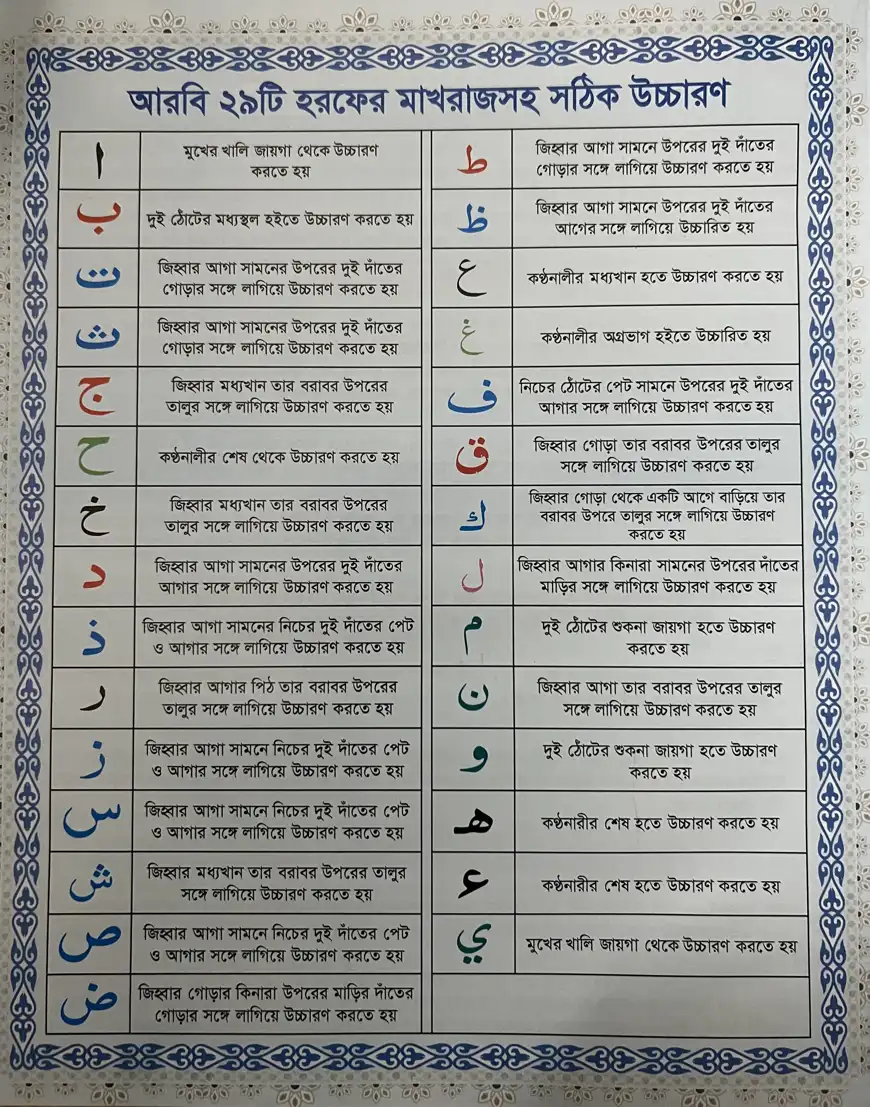 আরবি ২৯টি হরফের মাখরাজসহ সঠিক উচ্চারণ
ا
মুখের খালি জায়গা থেকে উচ্চারণ
করতে হয়
ب
দুই ঠোঁটের মধ্যস্থল হইতে উচ্চারণ করতে হয়
ت
জিহ্বার আগা সামনের উপরের দুই দাঁতের
গোড়ার সঙ্গে লাগিয়ে উচ্চারণ করতে হয়
ث
জিহ্বার আগা সামনের উপরের দুই দাঁতের
গোড়ার সঙ্গে লাগিয়ে উচ্চারণ করতে হয়
ج
জিহ্বার মধ্যখান তার বরাবর উপরের
তালুর সঙ্গে লাগিয়ে উচ্চারণ করতে হয়
ح
কণ্ঠনালীর শেষ থেকে উচ্চারণ করতে হয়
خ
জিহ্বার মধ্যখান তার বরাবর উপরের
তালুর সঙ্গে লাগিয়ে উচ্চারণ করতে হয়
د
জিহ্বার আগা সামনের উপরের দুই দাঁতের
আগার সঙ্গে লাগিয়ে উচ্চারণ করতে হয়
ذ
জিহ্বার আগা সামনের নিচের দুই দাঁতের পেট
ও আগার সঙ্গে লাগিয়ে উচ্চারণ করতে হয়
ر
জিহ্বার আগার পিঠ তার বরাবর উপরের
তালুর সঙ্গে লাগিয়ে উচ্চারণ করতে হয়
ز
জিহ্বার আগা সামনে নিচের দুই দাঁতের পেট
ও আগার সঙ্গে লাগিয়ে উচ্চারণ করতে হয়
س
জিহ্বার আগা সামনে নিচের দুই দাঁতের পেট
ও আগার সঙ্গে লাগিয়ে উচ্চারণ করতে হয়
ش
জিহ্বার মধ্যখান তার বরাবর উপরের তালুর
সঙ্গে লাগিয়ে উচ্চারণ করতে হয়
ص
জিহ্বার আগা সামনে নিচের দুই দাঁতের পেট
ও আগার সঙ্গে লাগিয়ে উচ্চারণ করতে হয়
ض
জিহ্বার গোড়ার কিনারা উপরের মাড়ির দাঁতের
গোড়ার সঙ্গে লাগিয়ে উচ্চারণ করতে হয়
ط
জিহ্বার আগা সামনে উপরের দুই দাঁতের
গোড়ার সঙ্গে লাগিয়ে উচ্চারণ করতে হয়
ظ
জিহ্বার আগা সামনে উপরের দুই দাঁতের
আগের সঙ্গে লাগিয়ে উচ্চারিত হয়
ع
কণ্ঠনালীর মধ্যখান হতে উচ্চারণ করতে হয়
غ
কণ্ঠনালীর অগ্রভাগ হইতে উচ্চারিত হয়
ف
নিচের ঠোঁটের পেট সামনে উপরের দুই দাঁতের
আগার সঙ্গে লাগিয়ে উচ্চারণ করতে হয়
ق
জিহ্বার গোড়া তার বরাবর উপরের তালুর
সঙ্গে লাগিয়ে উচ্চারণ করতে হয়
ك
জিহ্বার গোড়া থেকে একটি আগে বাড়িয়ে তার
বরাবর উপরে তালুর সঙ্গে লাগিয়ে উচ্চারণ
করতে হয়
ل
জিহ্বার আগার কিনারা সামনের উপরের দাঁতের
মাড়ির সঙ্গে লাগিয়ে উচ্চারণ করতে হয়
م
দুই ঠোঁটের শুকনা জায়গা হতে উচ্চারণ
করতে হয়
ن
জিহ্বার আগা তার বরাবর উপরের তালুর
সঙ্গে লাগিয়ে উচ্চারণ করতে হয়
و
দুই ঠোঁটের শুকনা জায়গা হতে উচ্চারণ
করতে হয়
هـ
কণ্ঠনারীর শেষ হতে উচ্চারণ করতে হয়
ء
কণ্ঠনারীর শেষ হতে উচ্চারণ করতে হয়
ي
মুখের খালি জায়গা থেকে উচ্চারণ করতে হয়